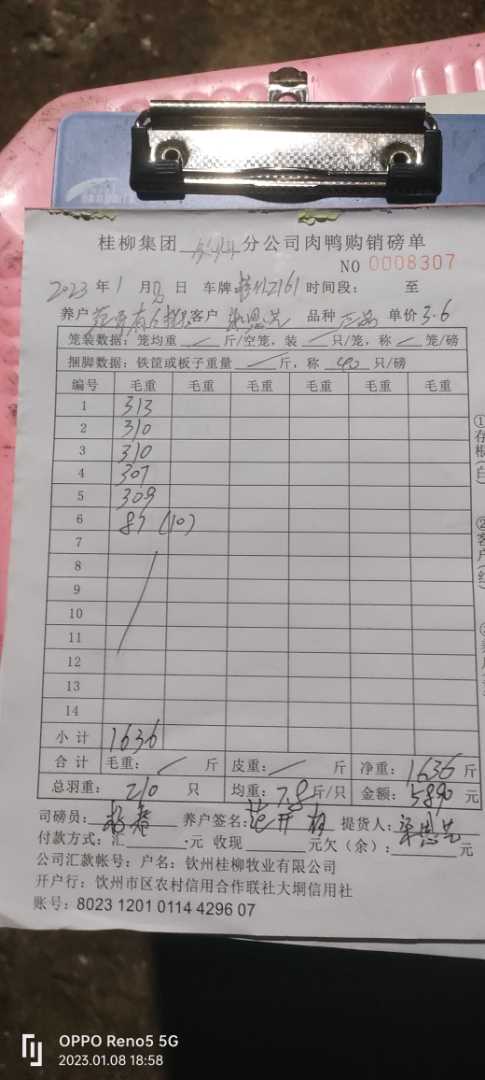 桂柳集团 分公司肉鸭购销磅单
NO 0008307
2023 年 1 月 日 车牌 2161 时间段: 至
养户 客户 梁恩芝 品种 单价 3.6
笼装数据: 笼均重 斤/空笼, 装 只/笼, 称 笼/磅
捆脚数据: 铁筐或板子重量 斤, 称 40 只/磅
编号 毛重 毛重 毛重 毛重 毛重 毛重
1 313
2 310
3 310
4 307
5 309
6 87 (10)
7
8
9
10
11
12
13
14
小计 1636
合计 毛重: 斤 皮重: 斤 净重: 1636 斤
总羽重: 210 只 均重: 7.8 斤/只 金额: 5890 元
司磅员: 养户签名: 提货人:
付款方式: 汇 元 收现 元欠(余): 元
公司汇款帐号: 户名: 钦州桂柳牧业有限公司
开户行: 钦州市区农村信用合作联社大垌信用社
账号: 8023 1201 0114 4296 07
①存根(白)
②客户(红)
OPPO Reno5 5G
2023.01.08 18:58